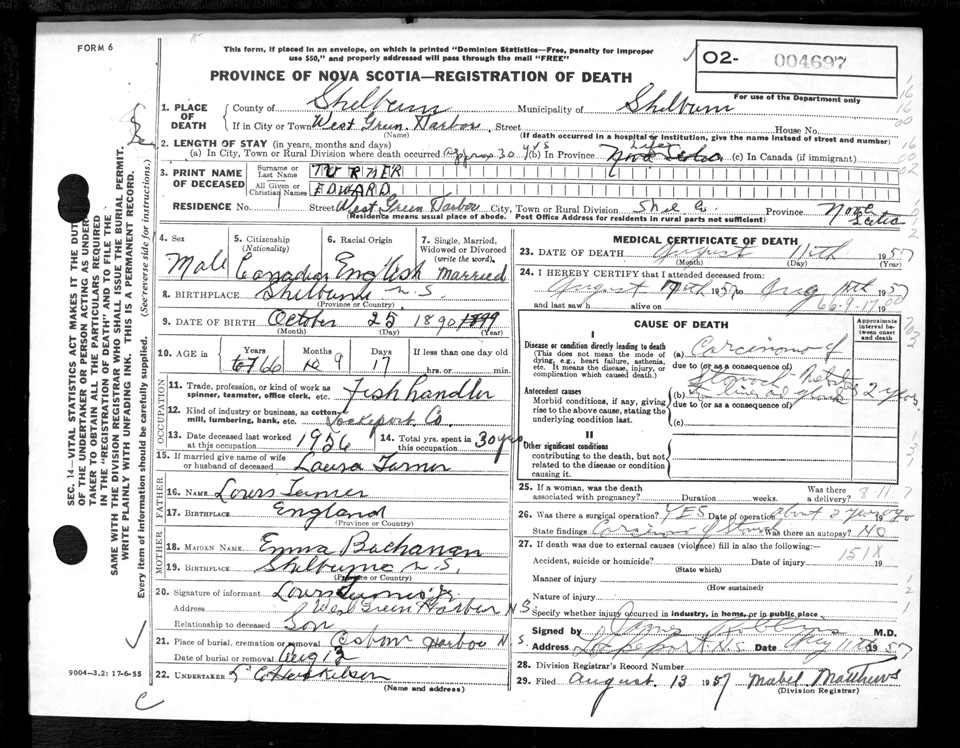 FORM 6
This form, if placed in an envelope, on which is printed "Dominion Statistics—Free, penalty for improper
use $50," and properly addressed will pass through the mail "FREE"
PROVINCE OF NOVA SCOTIA—REGISTRATION OF DEATH
O2- 004697
For use of the Department only
1. PLACE OF DEATH County of Shelburn Municipality of Shelburn
If in City or Town West Green Harbor Street House No.
(Name) (If death occurred in a hospital or institution, give the name instead of street and number)
2. LENGTH OF STAY (in years, months and days)
(a) In City, Town or Rural Division where death occurred approx 30 yrs (b) In Province Life Nova Scotia (c) In Canada (if immigrant)
3. PRINT NAME OF DECEASED Surname or Last Name TURNER
All Given or Christian Names EDWARD
RESIDENCE No. Street West Green Harbor City, Town or Rural Division Shel Co. Province Nova Scotia
(Residence means usual place of abode. Post Office Address for residents in rural parts not sufficient)
4. Sex Male
5. Citizenship (Nationality) Canadian
6. Racial Origin English
7. Single, Married, Widowed or Divorced (write the word) Married
8. BIRTHPLACE Shelburne N.S.
(Province or Country)
9. DATE OF BIRTH October 25 1890 1899
(Month) (Day) (Year)
10. AGE in Years 67 66 Months 10 9 Days 17 If less than one day old
hrs. or min.
OCCUPATION
11. Trade, profession, or kind of work as spinner, teamster, office clerk, etc. Fish handler
12. Kind of industry or business, as cotton mill, lumbering, bank, etc. Lockeport Co.
13. Date deceased last worked at this occupation 1956
14. Total yrs. spent in this occupation 30 yrs
15. If married give name of wife or husband of deceased Laura Turner
FATHER
16. NAME Louis Turner
17. BIRTHPLACE England
(Province or Country)
MOTHER
18. MAIDEN NAME Emma Buchanan
19. BIRTHPLACE Shelburne N.S.
(Province or Country)
20. Signature of informant Louis Turner Jr.
Address West Green Harbor N.S.
Relationship to deceased Son
21. Place of burial, cremation or removal Osborn Harbor N.S.
Date of burial or removal Aug 13
22. UNDERTAKER
(Name and address)
MEDICAL CERTIFICATE OF DEATH
23. DATE OF DEATH August 11th 1957
(Month) (Day) (Year)
24. I HEREBY CERTIFY that I attended deceased from:
August 1957 to Aug 11th 1957
and last saw h alive on 19
66-9-17
CAUSE OF DEATH
Approximate interval between onset and death
I
Disease or condition directly leading to death
(This does not mean the mode of dying, e.g., heart failure, asthenia, etc. It means the disease, injury, or complication which caused death.)
(a) Carcinoma of
due to (or as a consequence of)
Stomach
Antecedent causes
Morbid conditions, if any, giving rise to the above cause, stating the underlying condition last.
(b) 2 years
due to (or as a consequence of)
(c)
II
Other significant conditions
contributing to the death, but not related to the disease or condition causing it.
25. If a woman, was the death associated with pregnancy? Duration weeks. Was there a delivery?
26. Was there a surgical operation? YES Date of operation about 2 years ago 19
State findings Carcinoma of Stomach Was there an autopsy? NO
27. If death was due to external causes (violence) fill in also the following:—
151X
Accident, suicide or homicide? Date of injury 19
(State which)
Manner of injury
(How sustained)
Nature of injury
Specify whether injury occurred in industry, in home, or in public place
Signed by M.D.
Address Lockeport N.S. Date Aug 11th 1957
28. Division Registrar's Record Number
29. Filed August 13 1957 Mabel Matthews
(Division Registrar)
9004—3.2: 17-6-55
SEC. 14—VITAL STATISTICS ACT MAKES IT THE DUTY
OF THE UNDERTAKER OR PERSON ACTING AS UNDER-
TAKER TO OBTAIN ALL THE PARTICULARS REQUIRED
IN THE "REGISTRATION OF DEATH" AND TO FILE THE
SAME WITH THE DIVISION REGISTRAR WHO SHALL ISSUE THE BURIAL PERMIT.
WRITE PLAINLY WITH UNFADING INK. THIS IS A PERMANENT RECORD.
Every item of information should be carefully supplied. (See reverse side for instructions.)